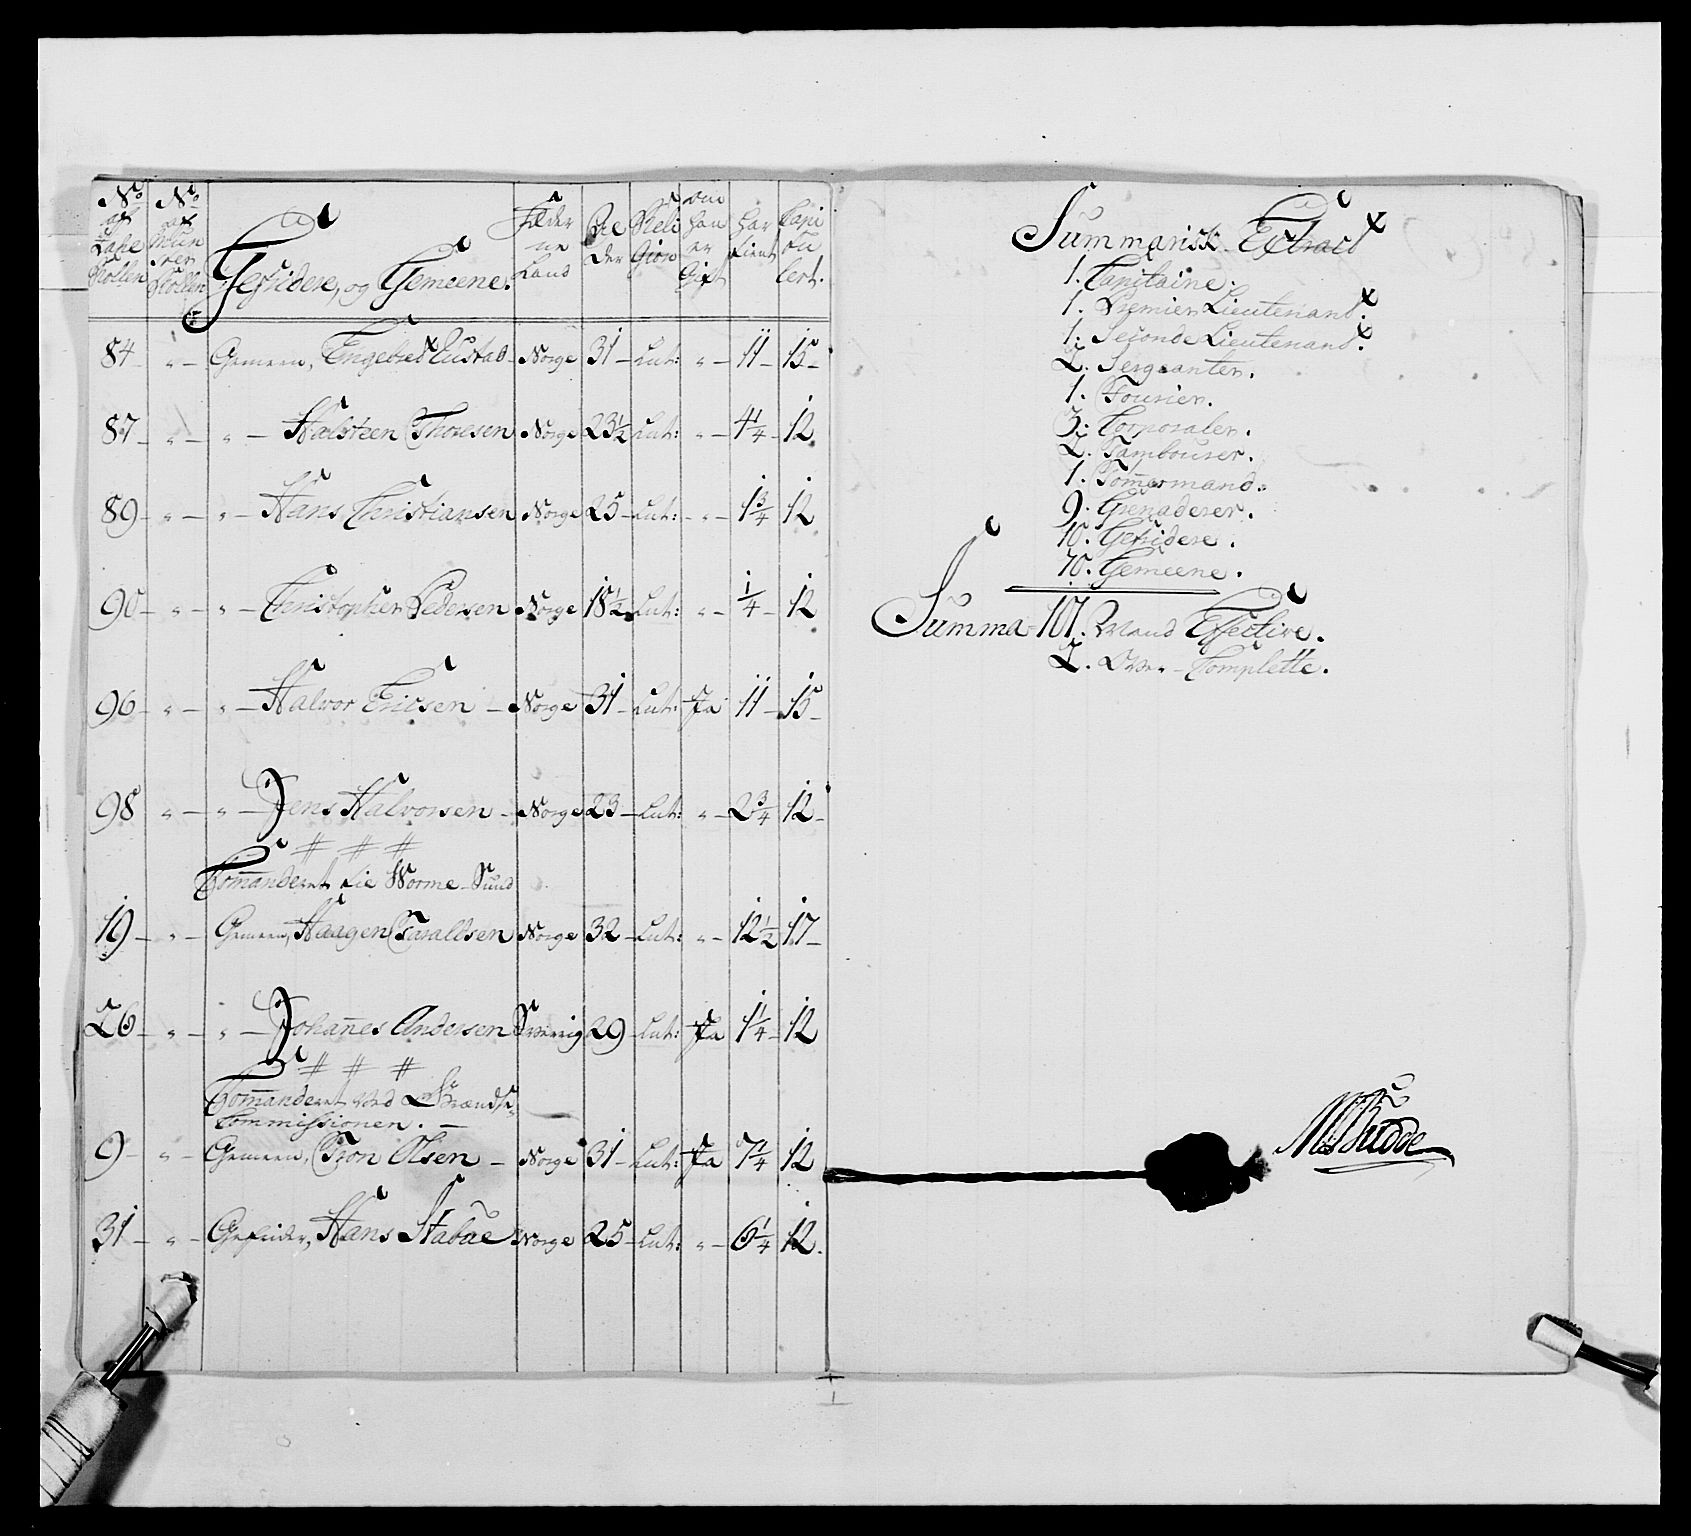 No af Lage Rollen | No af Mun ster Rollen | Gefridere, og Gemeene. | Fæder ne Land | Al der | Reli gion | om han er Gift | har tient | Capi tu lert.
84 – " – Gemeen, Engebret Eustad – Norge 31 – Lut: " – 11 – 15 –
87 – " – " – Halsteen Thoresen Norge 23 1/2 Lut: " – 4 1/4 – 12
89 – " – " – Hans Christiansen Norge 25 – Lut: – " – 1 3/4 12
90 – " – " – Christopher Pedersen Norge 18 1/2 Lut: " – 1/4 – 12
96 – " – " – Halvor Ericsen – Norge 31 – Lut: Ja 11 – 15 –
98 " – " – Jens Halvorsen – Norge 23 – Lut: " – 2 3/4 12 –
Commanderet til Worme-Sund
19 – " – Gemeen, Haagen Taraldsen Norge 32 – Lut: " – 12 1/2 17 –
26 – " – " – Johannes Andersen Sverrig 29 – Lut: Ja 1 1/4 – 12
Commanderet ved Grændse-
Commissionen. –
9 – " – Gemeen, Tron Olsen – Norge 31 – Lut: Ja 7 1/4 12
31 – " – Gefrider, Hans Stabæe Norge 25 – Lut: " – 6 1/4 12.
Summarisk Extract
1. Capitaine.
1. Premier Lieutenant.
1. Seconde Lieutenant.
2. Sergeanter.
1. Fourier.
3. Corporaler.
2. Tambourer.
1. Tommermand.
9. Grenaderer.
10. Gefridere.
70. Gemeene.
Summa – 101. Mand Effective.
2. Over-Complette.
Budde